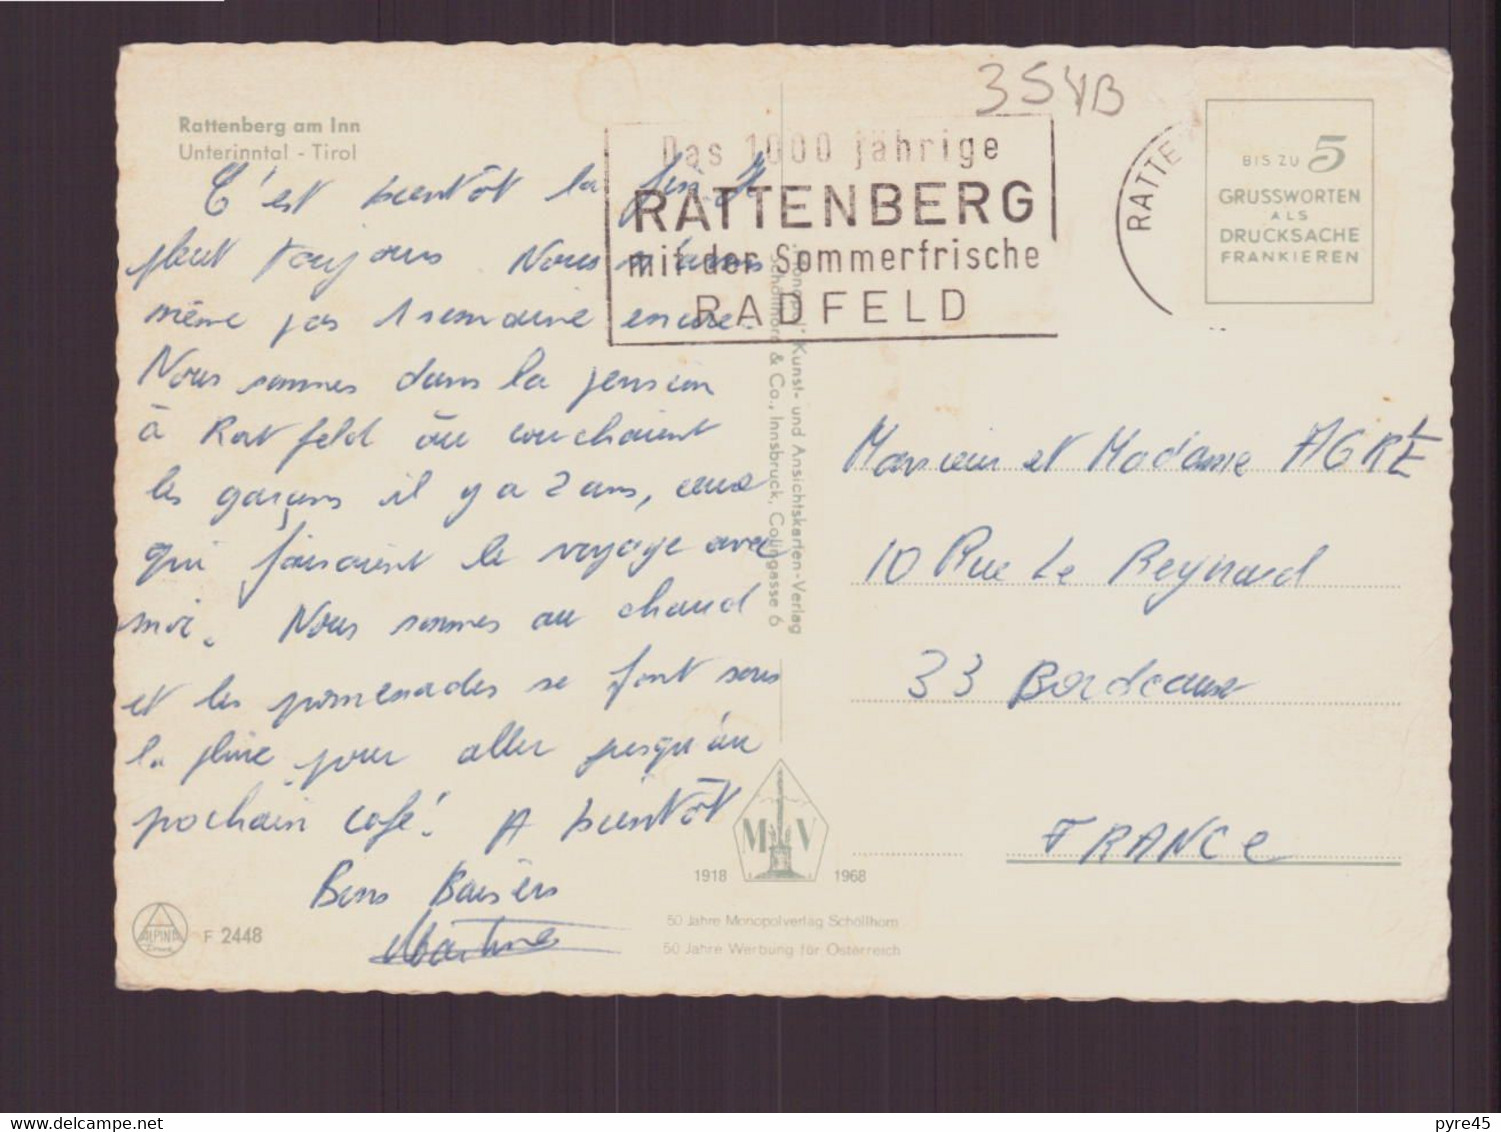 Rattenberg am Inn
Unterinntal - Tirol
C'est bientôt la fin. Il
pleut toujours Nous n'avons
même pas 1 semaine encore.
Nous sommes dans la pension
à Ratfeld où couchaient
les garçons il y a 2 ans, ceux
qui faisaient le voyage avec
moi. Nous sommes au chaud
et les promenades se font sous
la pluie pour aller jusqu'au
prochain café! A bientôt
Bons Baisers
Martine
ALPINA
F 2448
354B
Das 1000 jährige
RATTENBERG
mit der Sommerfrische
RADFELD
RATTE
BIS ZU 5
GRUSSWORTEN
ALS
DRUCKSACHE
FRANKIEREN
Kunst- und Ansichtskarten-Verlag
Schöllhorn & Co., Innsbruck, Colingasse 6
Monsieur et Madame AGRE
10 Rue Le Reynard
33 Bordeaux
FRANCE
M V
1918 1968
50 Jahre Monopolverlag Schöllhorn
50 Jahre Werbung für Österreich
delcampe.net
pyre45